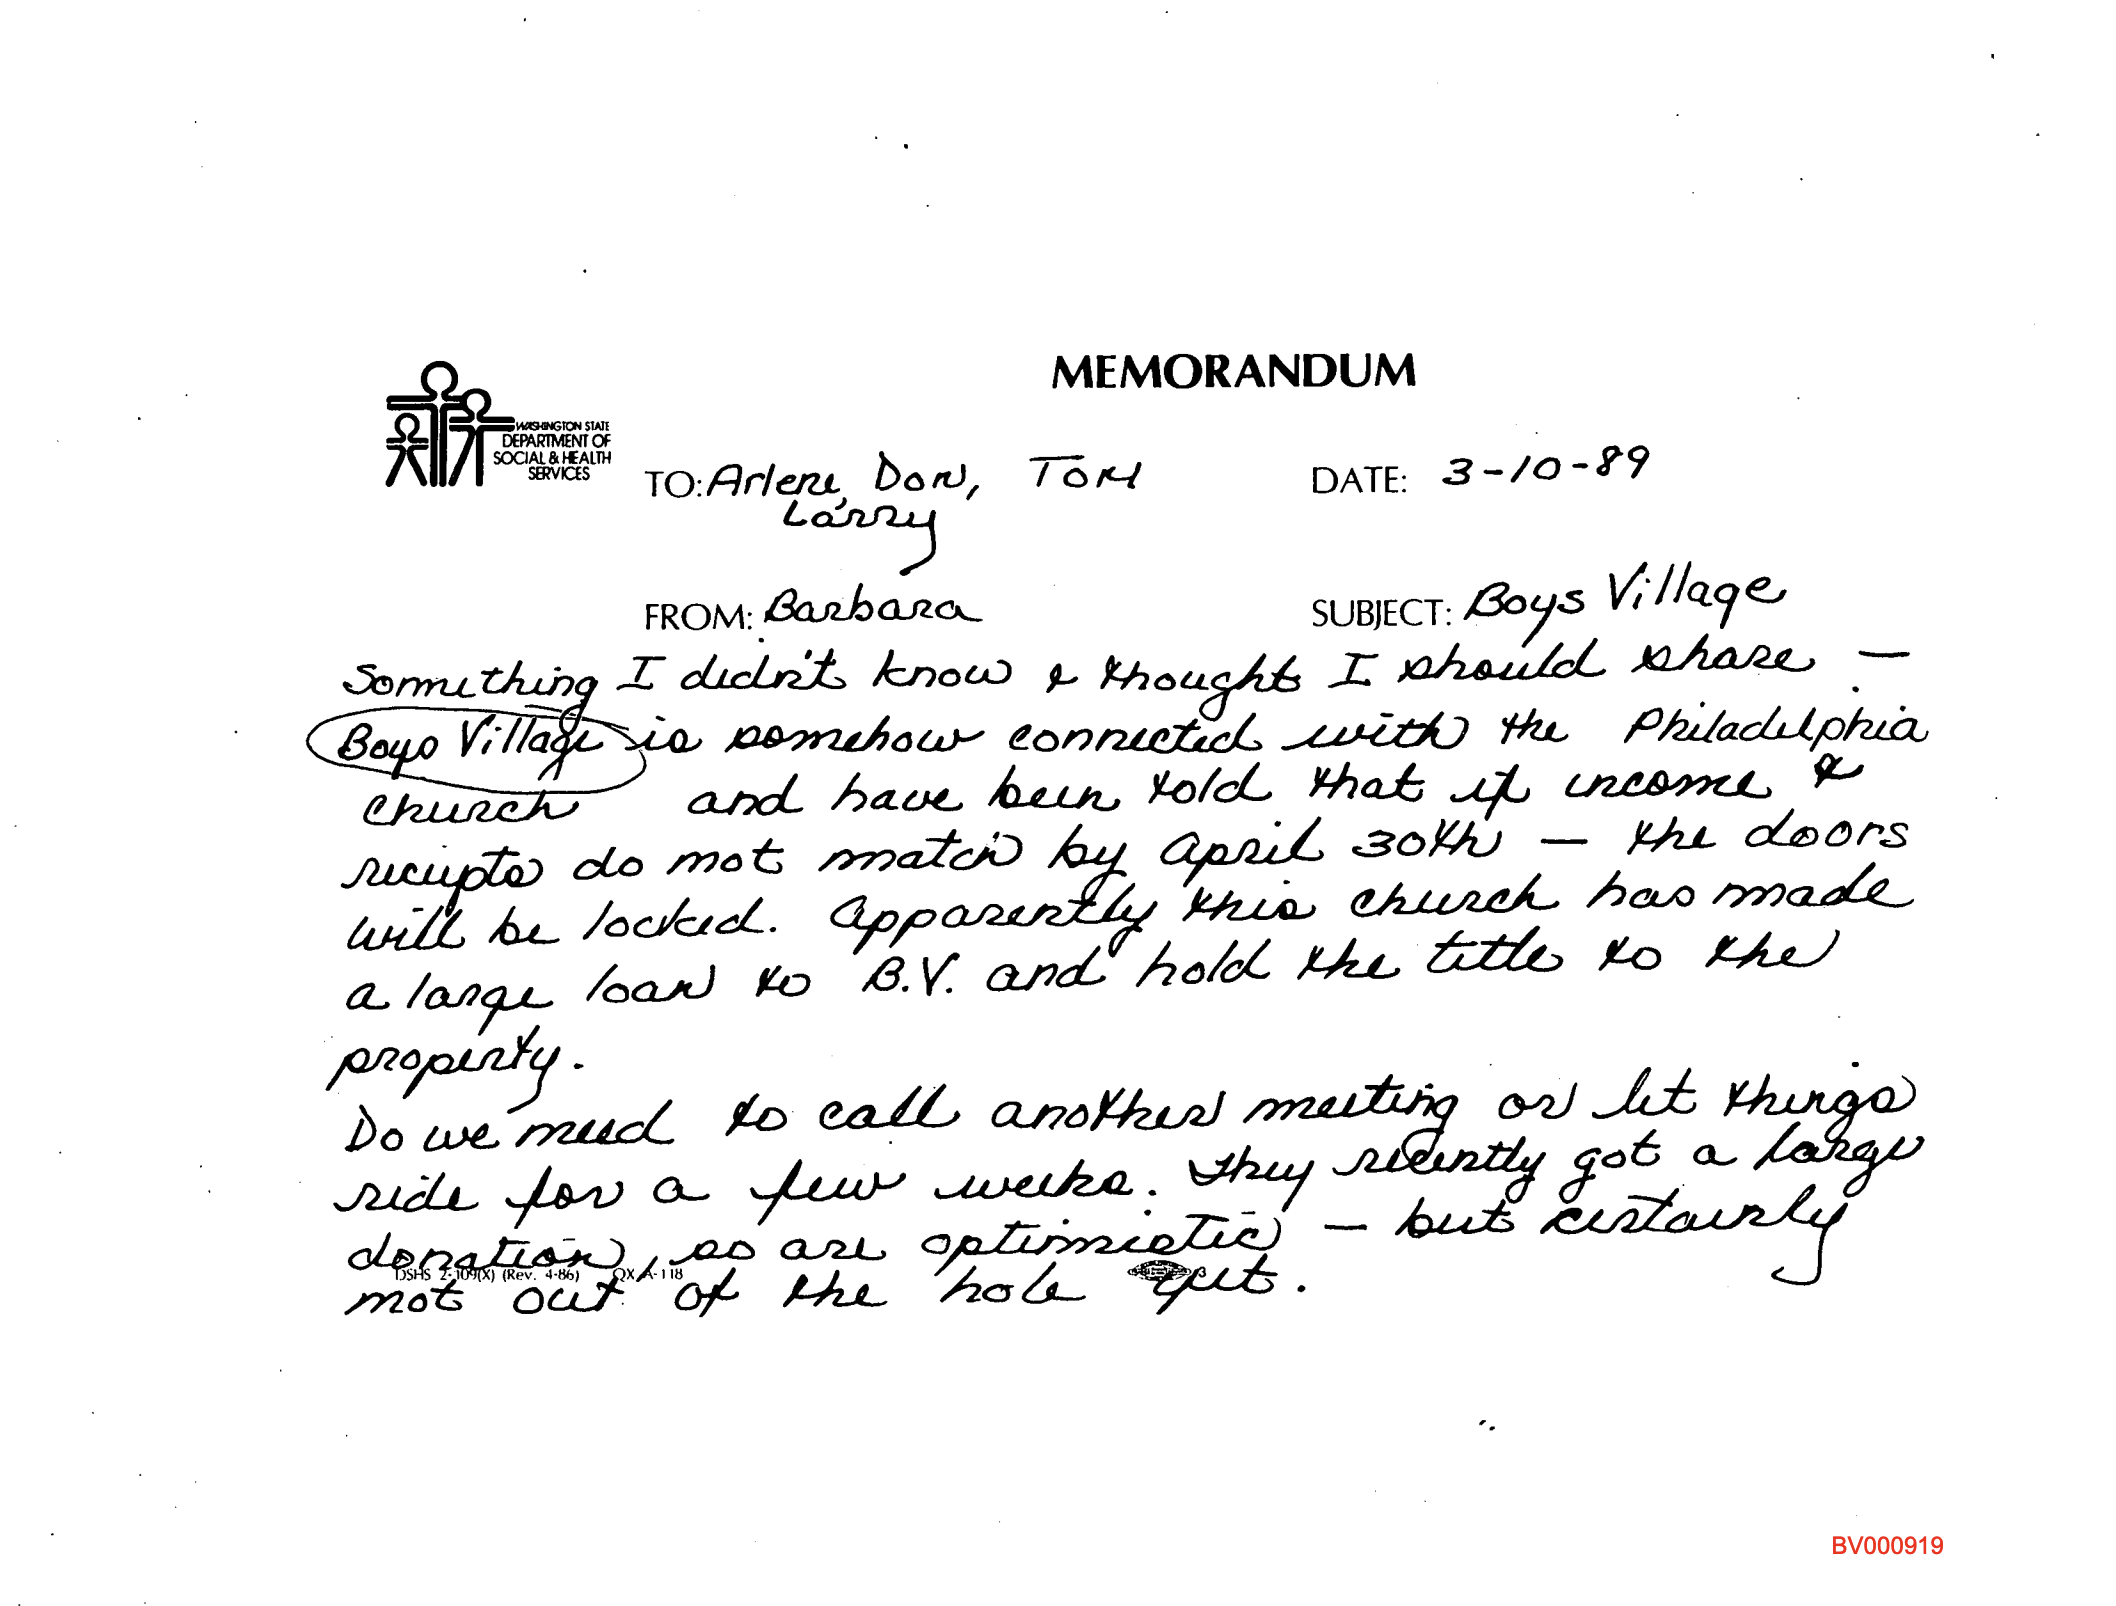 MEMORANDUM
WASHINGTON STATE
DEPARTMENT OF
SOCIAL & HEALTH
SERVICES
TO: Arlene, Don, Tom
Larry
DATE: 3-10-89
FROM: Barbara
SUBJECT: Boys Village
Something I didn't know & thought I should share –
Boys Village is somehow connected with the Philadelphia
church and have been told that if income &
reciepts do not match by April 30th – the doors
will be locked. Apparently this church has made
a large loan to B.V. and hold the title to the
property.
Do we need to call another meeting or let things
ride for a few weeks. They recently got a large
donation, so are optimistic – but certainly
DSHS 2-109(X) (Rev. 4-86) QX A-118
not out of the hole yet.
BV000919